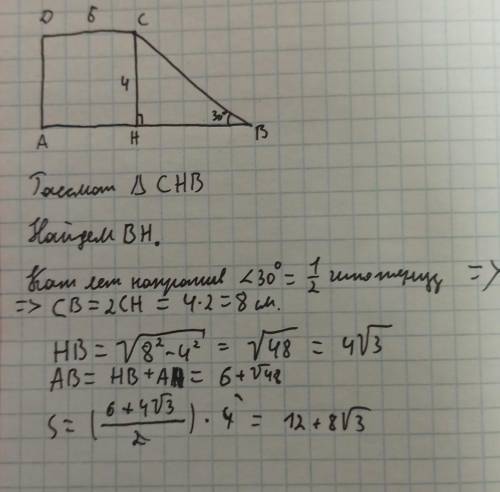 D 6 C
4
30°
A H B
Рассмот Δ CHB
Найдем BH.
Кат леж напротив ∠30° = 1/2 гипотенузы =>
=> CB = 2CH = 4·2 = 8 см.
HB = √(8² - 4²) = √48 = 4√3
AB = HB + AH = 6 + √48
S = ((6 + 4√3)/2) · 4 = 12 + 8√3